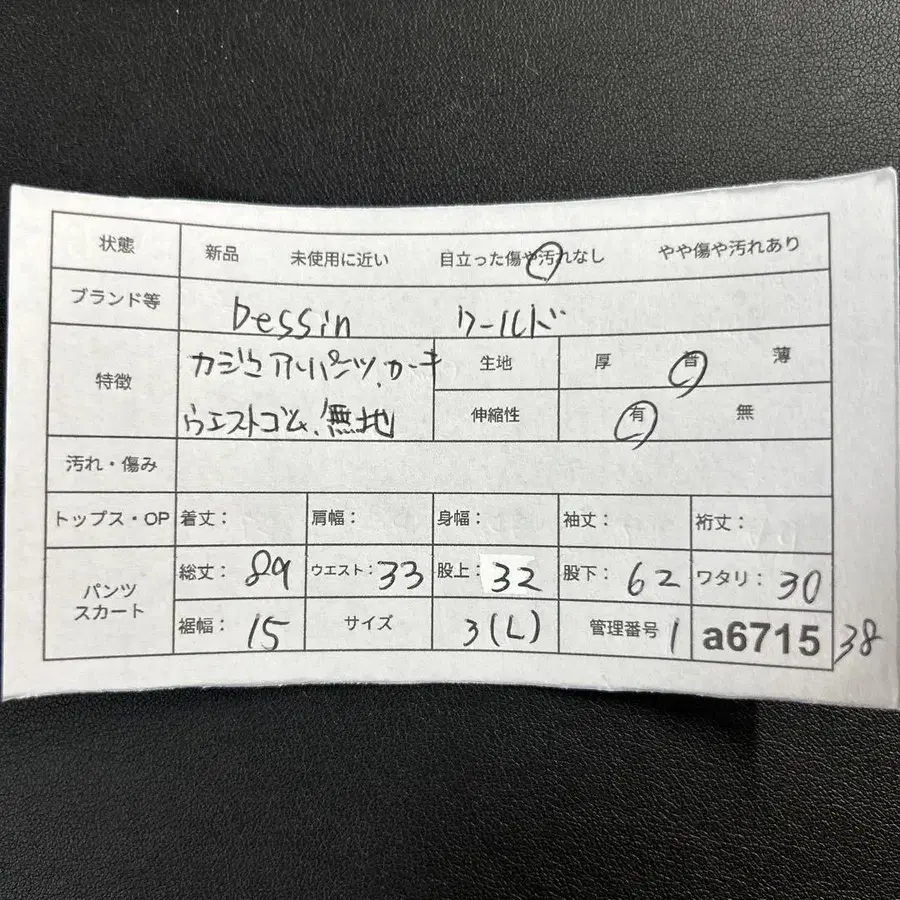 状態 新品 未使用に近い 目立った傷や汚れなし やや傷や汚れあり
ブランド等 Dessin ワールド
特徴 カジュアルパンツ、カーキ 生地 厚 普 薄
ウエストゴム、無地 伸縮性 有 無
汚れ・傷み
トップス・OP 着丈: 肩幅: 身幅: 袖丈: 裄丈:
パンツ スカート 総丈: 89 ウエスト: 33 股上: 32 股下: 62 ワタリ: 30
裾幅: 15 サイズ 3(L) 管理番号 1 a6715 38